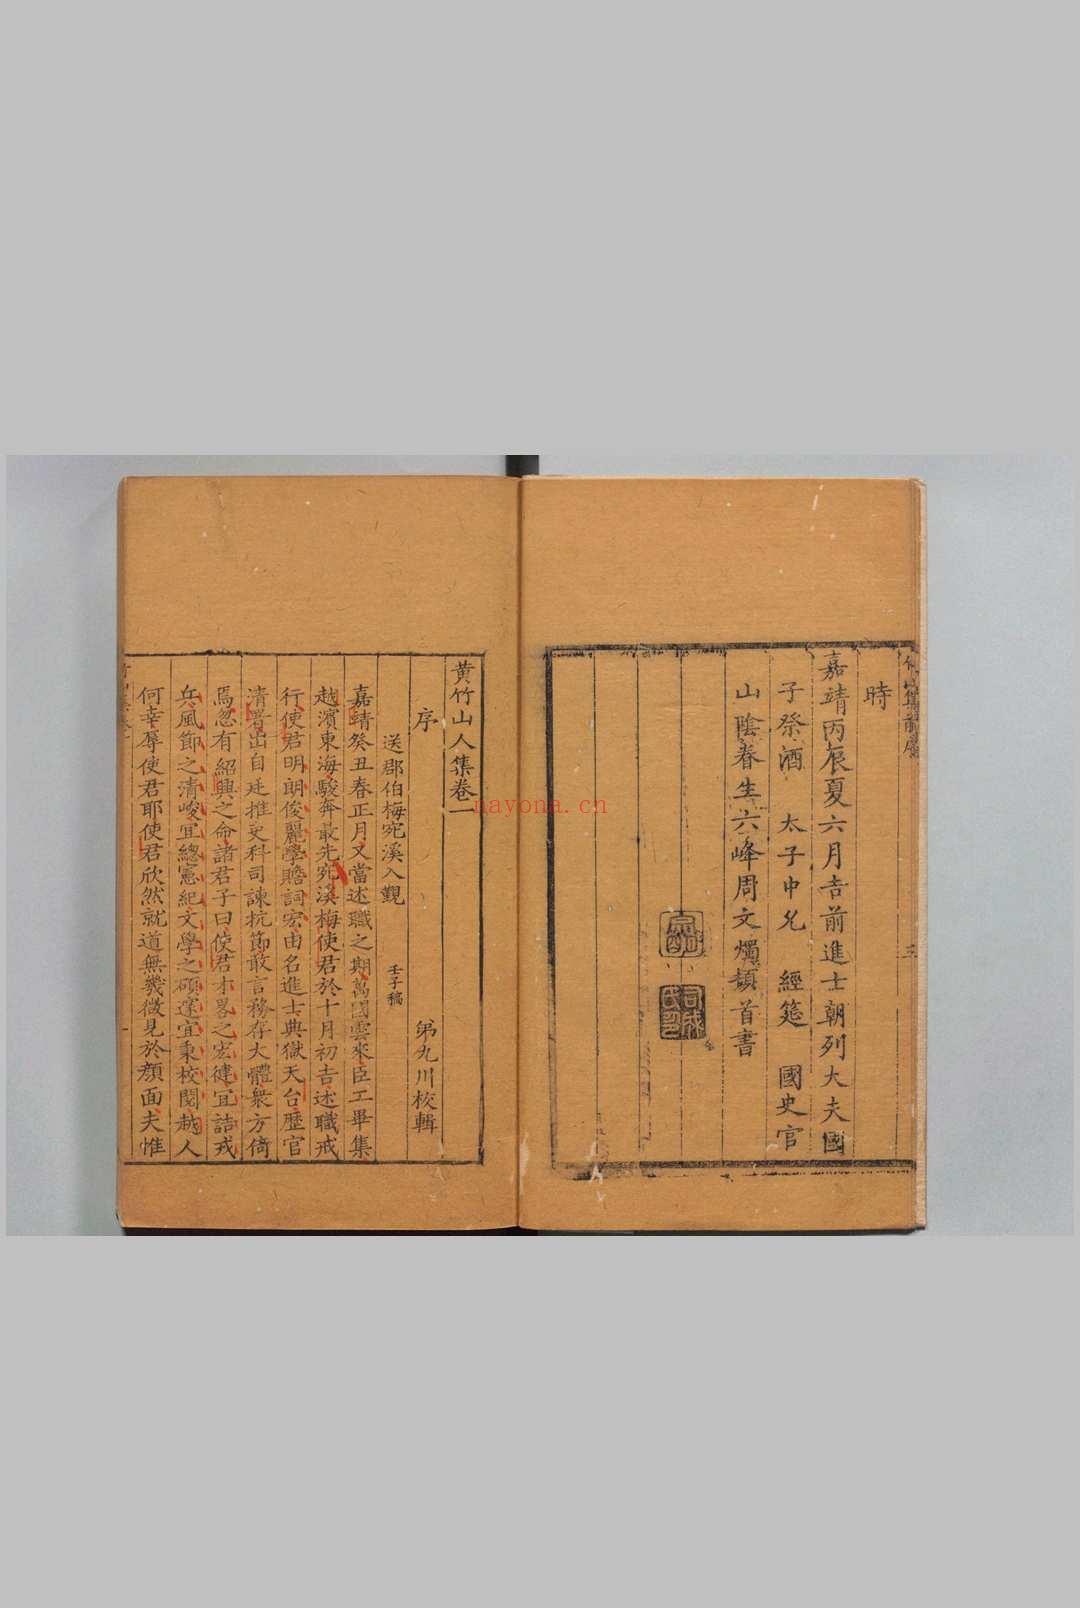 時
嘉靖丙辰夏六月吉前進士朝列大夫國
子祭酒 太子中允 經筵 國史官
山陰春生六峰周文燭頓首書
三
黃竹山人集卷一
序 弟九川校輯
送郡伯梅宛溪入覲 壬子稿
嘉靖癸丑春正月又當述職之期萬國雲來臣工畢集
越濱東海駿奔最先宛溪梅使君於十月初吉述職戒
行使君明朗俊麗學贍詞宏由名進士典獄天台歷官
清署出自廷推吏科司諫抗節敢言務存大體衆方倚
焉忽有紹興之命諸君子曰使君才畧之宏偉宜詰戎
兵風節之清峻宜總憲紀文學之碩邃宜秉校閱越人
何幸辱使君耶使君欣然就道無幾微見於顏面夫惟
nayona.cn